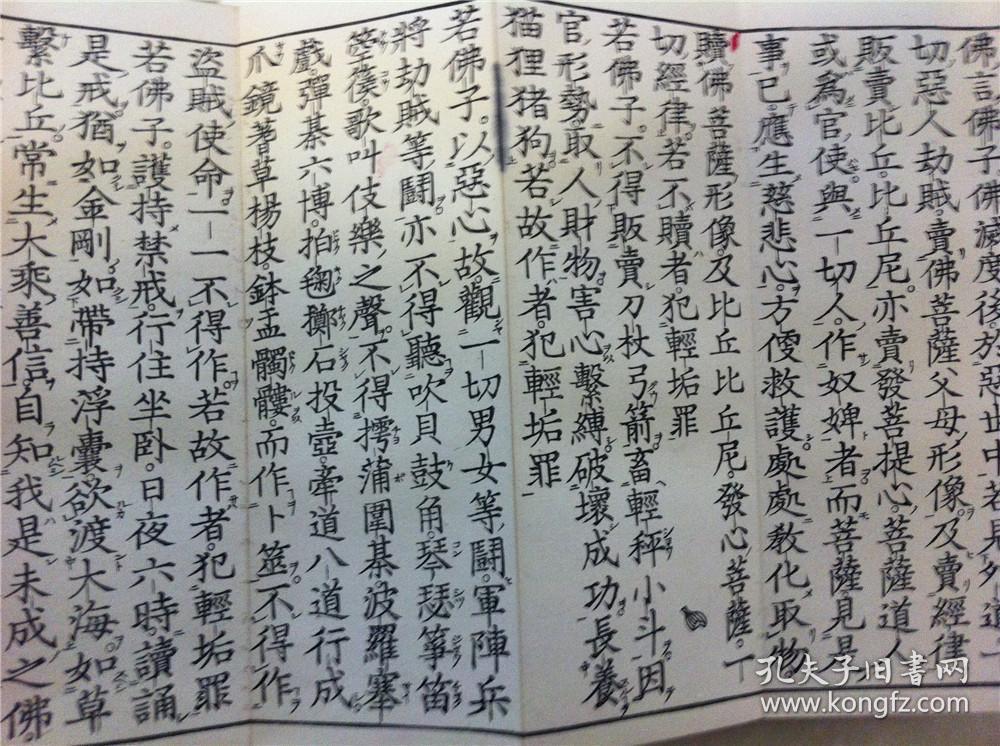 佛言佛子佛滅度後。於惡世中。若見外道一
切惡人劫賊。賣佛菩薩父母形像。及賣經律
販賣比丘。比丘尼。亦賣發菩提心。菩薩道人
或為官使。與一切人。作奴婢者。而菩薩。見是
事已。應生慈悲心。方便救護。處處教化。取物
贖佛菩薩形像。及比丘比丘尼。發心菩薩。一
切經律。若不贖者。犯輕垢罪
若佛子。不得販賣刀杖弓箭。畜輕秤小斗。因
官形勢。取人財物。害心繫縛。破壞成功。長養
猫狸猪狗。若故作者。犯輕垢罪
若佛子。以惡心故。觀一切男女等鬪。軍陣兵
將劫賊等鬪。亦不得聽吹貝鼓角。琴瑟箏笛
箜篌。歌叫伎樂之聲。不得摴蒲圍棊。波羅塞
戲。彈棊六博。拍毱擲石投壺。牽道八道行成
爪鏡蓍草楊枝。鉢盂髑髏。而作卜筮。不得作
盜賊使命一一不得作。若故作者。犯輕垢罪
若佛子。護持禁戒。行住坐臥。日夜六時。讀誦
是戒。猶如金剛。如帶持浮囊。欲渡大海。如草
繫比丘。常生大乘善信。自知我是未成之佛
孔夫子旧書网
www.kongfz.com